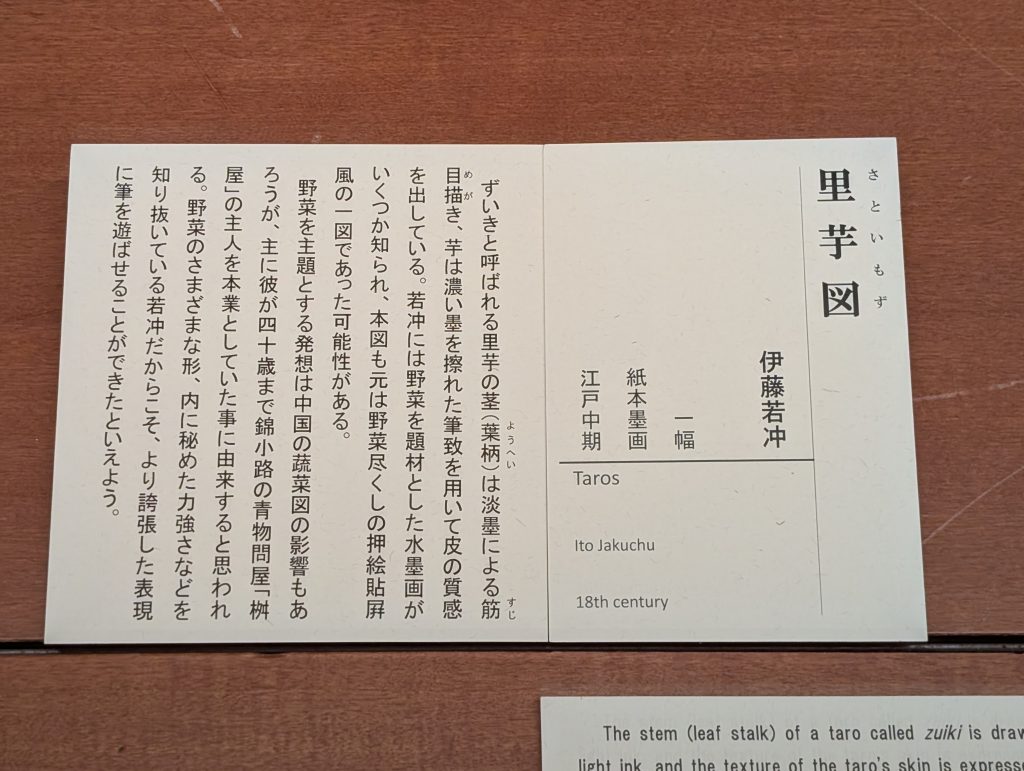 さといもず
里芋図
伊藤若冲
一幅
紙本墨画
江戸中期
Taros
Ito Jakuchu
18th century
ずいきと呼ばれる里芋の茎（葉柄）は淡墨による筋
ようへい
すじ
目描き、芋は濃い墨を擦れた筆致を用いて皮の質感
めが
を出している。若冲には野菜を題材とした水墨画が
いくつか知られ、本図も元は野菜尽くしの押絵貼屛
風の一図であった可能性がある。
野菜を主題とする発想は中国の蔬菜図の影響もあ
ろうが、主に彼が四十歳まで錦小路の青物問屋「桝
屋」の主人を本業としていた事に由来すると思われ
る。野菜のさまざまな形、内に秘めた力強さなどを
知り抜いている若冲だからこそ、より誇張した表現
に筆を遊ばせることができたといえよう。
The stem (leaf stalk) of a taro called zuiki is
light ink, and the texture of the taro's skin is